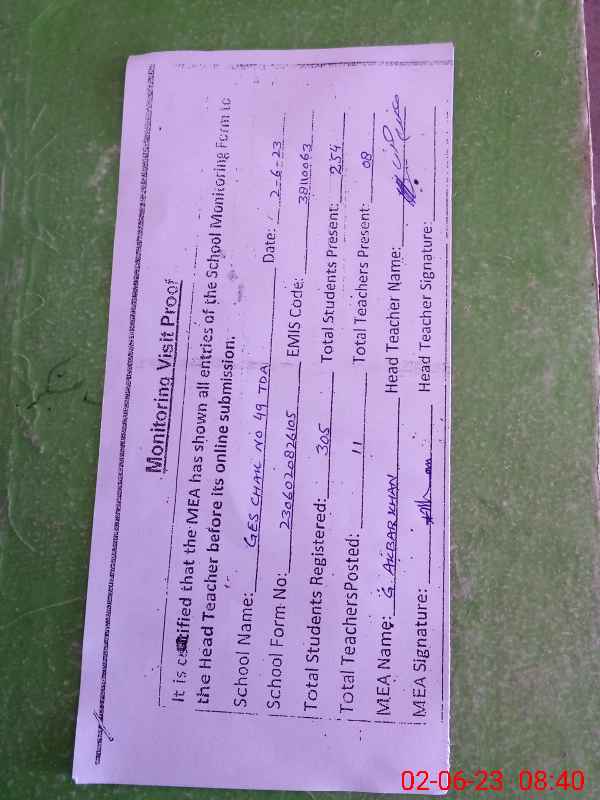 Monitoring Visit Proof
It is certified that the MEA has shown all entries of the School Monitoring Form to
the Head Teacher before its online submission.
School Name: GES CHAK NO 49 TDA Date: 2-6-23
School Form No: 2306020826105 EMIS Code: 38110063
Total Students Registered: 305 Total Students Present: 254
Total TeachersPosted: 11 Total Teachers Present: 08
MEA Name: G. AKBAR KHAN Head Teacher Name:
MEA Signature: Head Teacher Signature:
02-06-23 08:40